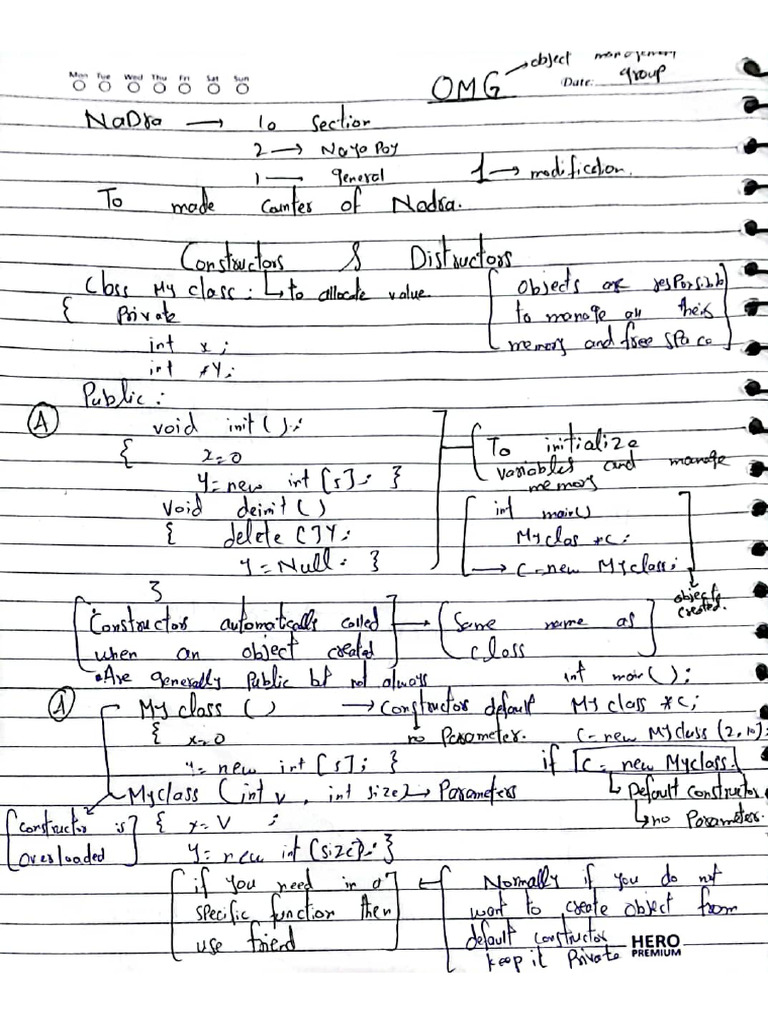 object management
OMG
Date: group
Mon Tue Wed Thu Fri Sat Sun
NaDra → 10 section
2 → NayaPay
1 — general 1 → modification.
To made counter of Nadra.
Constructors & Distructors
Class My class : ↳ to allocate value.
{ Private
int x ;
int *Y;
[ Objects are responsible
to manage all their
memory and free space ]
Public :
(A) void init();
{ x=0
Y= new int [5]; }
void deinit()
{ delete []Y;
Y = Null; }
}
To initialize
variables and manage
memory
int main()
My clas *c;
→ c=new Myclass;
objects
created.
[ Constructors automatically called
when an object created ] → [ Same name as
class ]
• Are generally Public bt not always
int main();
(A) My class () → Constructors default
My class *c;
{ x=0 no Parameter.
c=new Myclass (2,10);
Y= new int [5]; }
if c= new Myclass.
↳ Default constructor
↳ no Parameter.
Myclass (int v, int size) → Parameters
[ constructor is
overloaded ]
{ x= V ;
Y= new int [size]; }
[ if you need in a
specific function then
use friend ]
← [ Normally if you do not
want to create object from
default constructor
keep it Private
HERO
PREMIUM